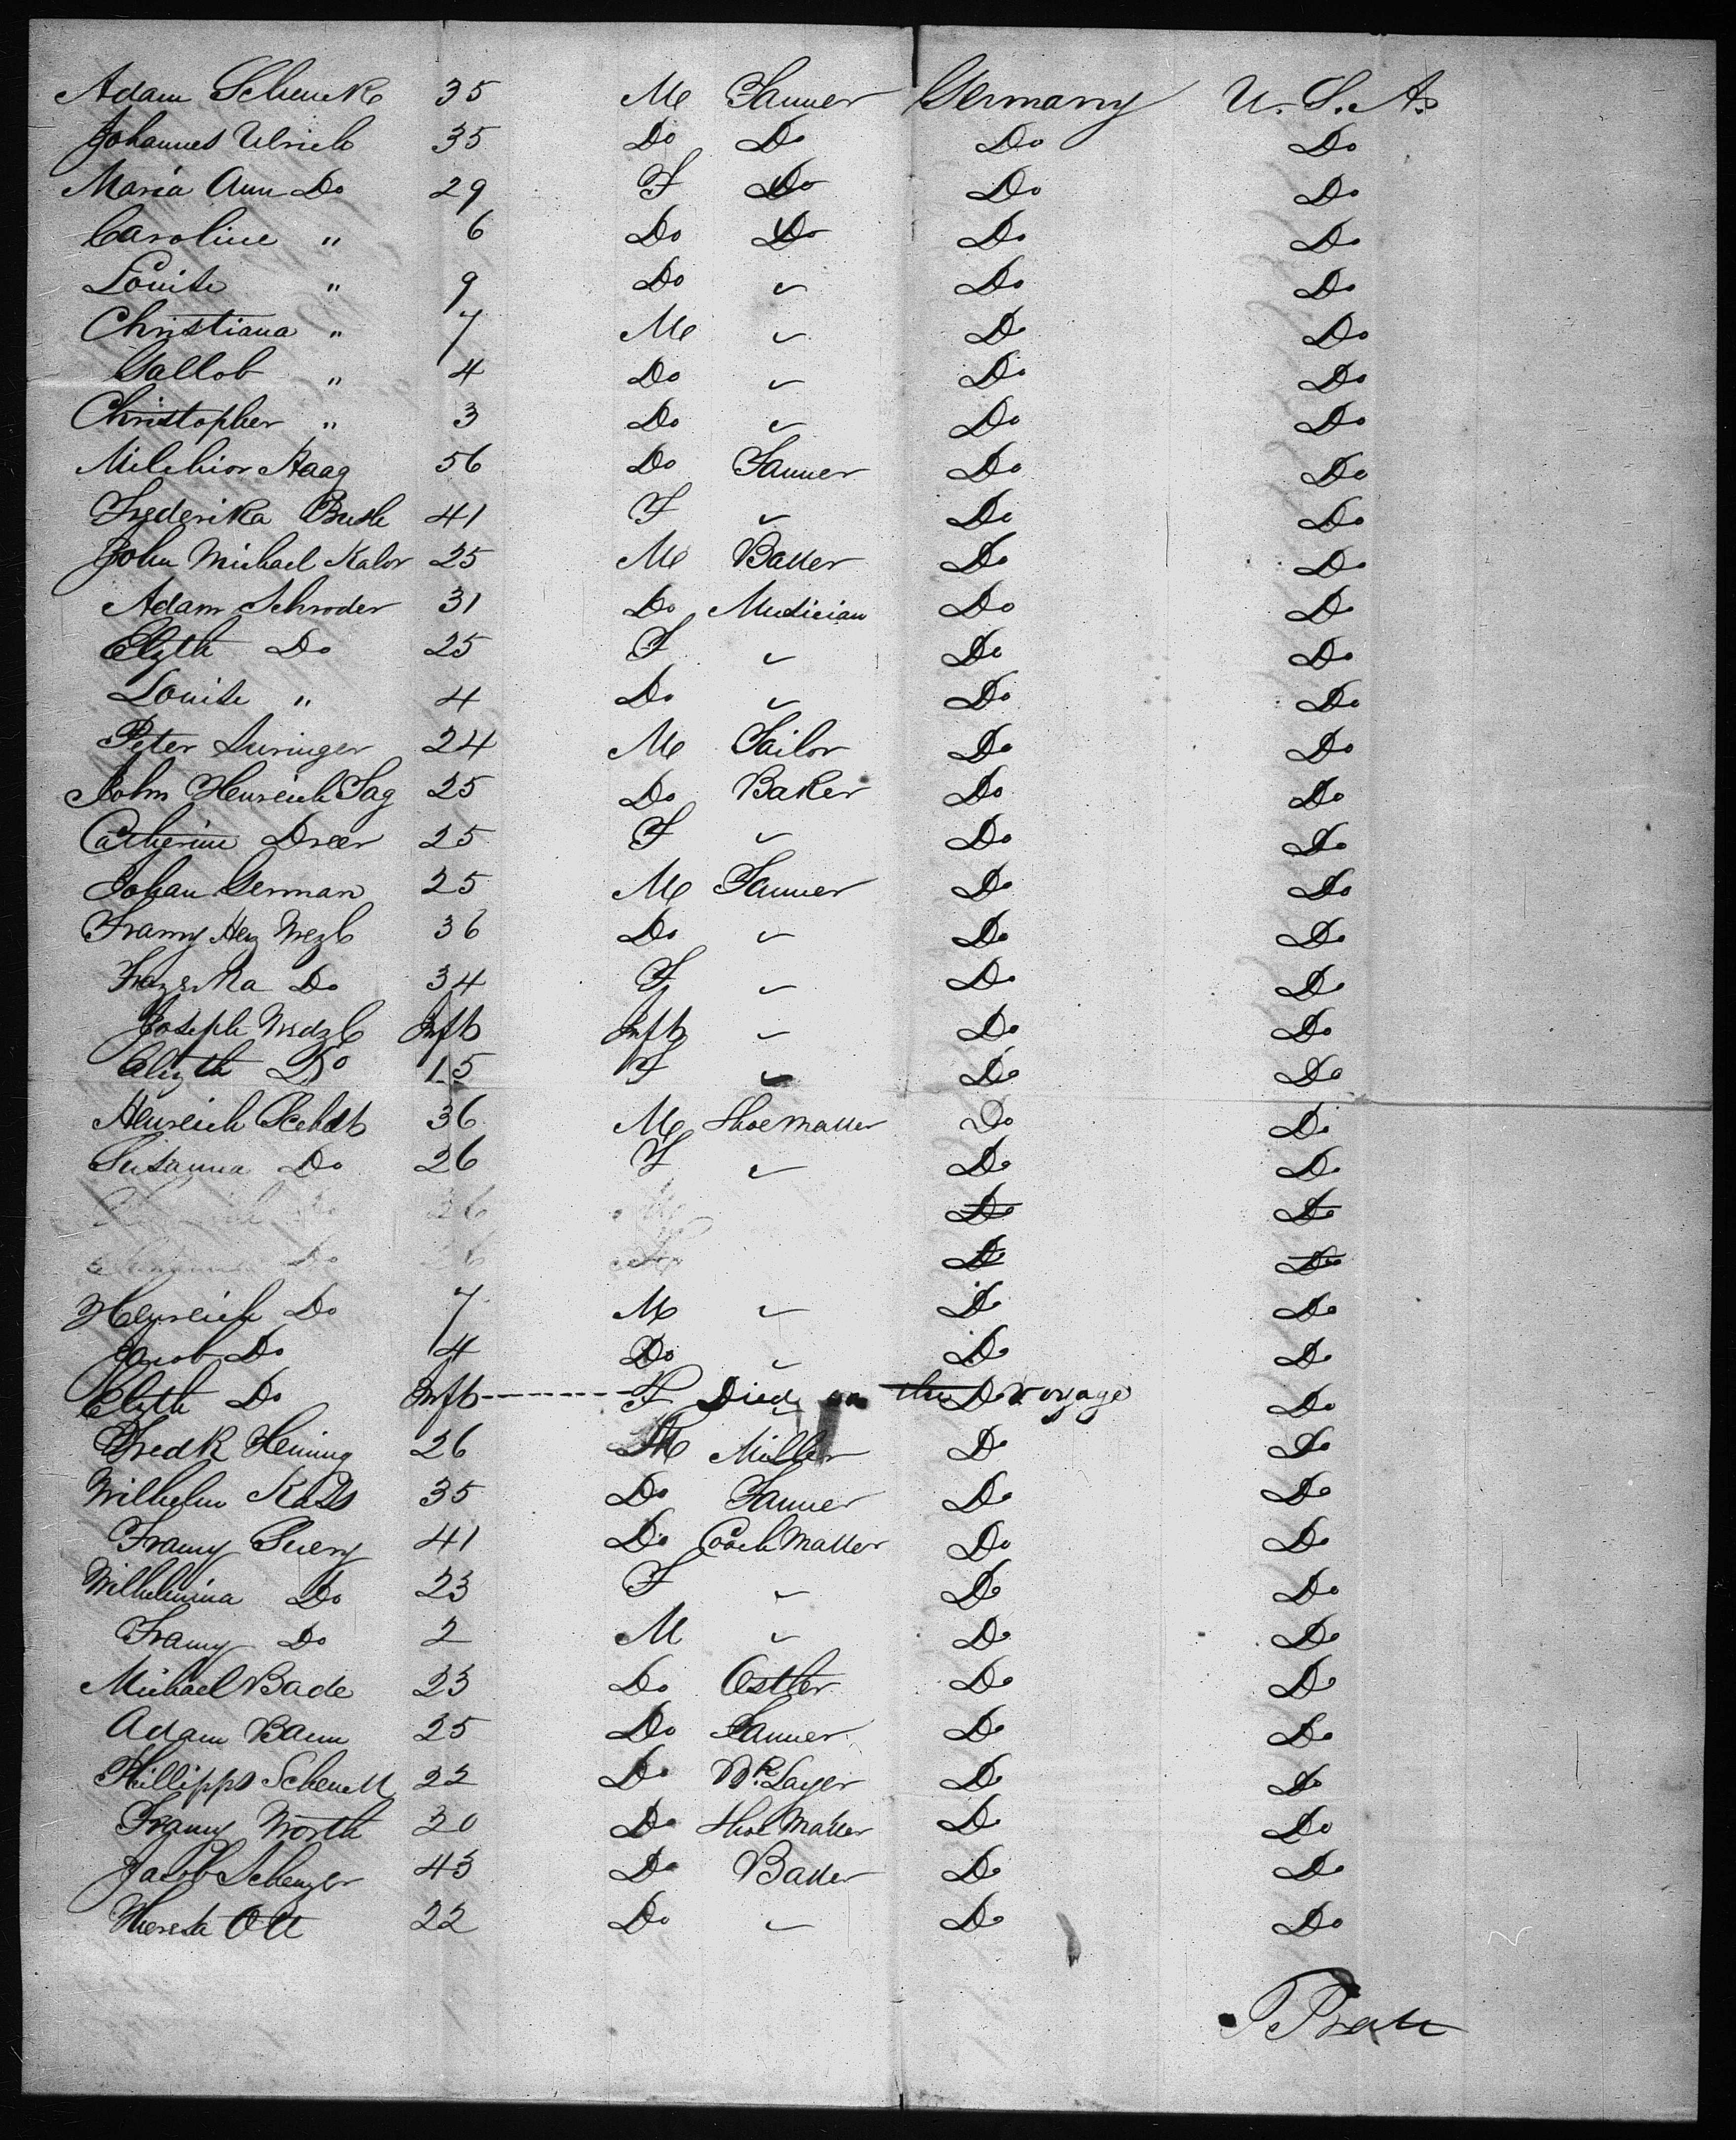 Adam Schenck 35 M Farmer Germany U. S. A.
Johannes Ulrich 35 Do Do Do Do
Maria Ann Do 29 F Do Do Do
Caroline " 6 Do Do Do Do
Louise " 9 Do " Do Do
Christiana " 7 M " Do Do
Gallob " 4 Do " Do Do
Christopher " 3 Do " Do Do
Milchior Haag 56 Do Farmer Do Do
Frederika Bush 41 F " Do Do
John Michael Kalor 25 M Baker Do Do
Adam Schroder 31 Do Musician Do Do
Elizth Do 25 F " Do Do
Louise " 4 Do " Do Do
Peter 24 M Tailor Do Do
John Henreich Sag 25 Do Baker Do Do
Catherine Dreer 25 F " Do Do
Johan German 25 M Farmer Do Do
Franny 36 Do " Do Do
Do 34 F " Do Do
Joseph Inft Inft " Do Do
Elizth Do 15 F " Do Do
Henreich 36 M Shoemaker Do Do
Susanna Do 26 F " Do Do
Do 36 Do Do
Do 26 Do Do
Henreich Do 7 M " Do Do
Jacob Do 4 Do " Do Do
Elizth Do Inft F Died on the Do voyage Do
Fredk Heming 26 M Miller Do Do
Wilhelm 35 Do Farmer Do Do
Franny 41 Do Coach Maker Do Do
Wilhelmina Do 23 F " Do Do
Franny Do 2 M " Do Do
Michael Bade 23 Do Ostler Do Do
Adam Baum 25 Do Farmer Do Do
Phillipps Schenck 22 Do Bk Layer Do Do
Franny Worth 30 Do Shoe Maker Do Do
Jacob Schenzer 43 Do Baker Do Do
Theresa Ott 22 Do " Do Do